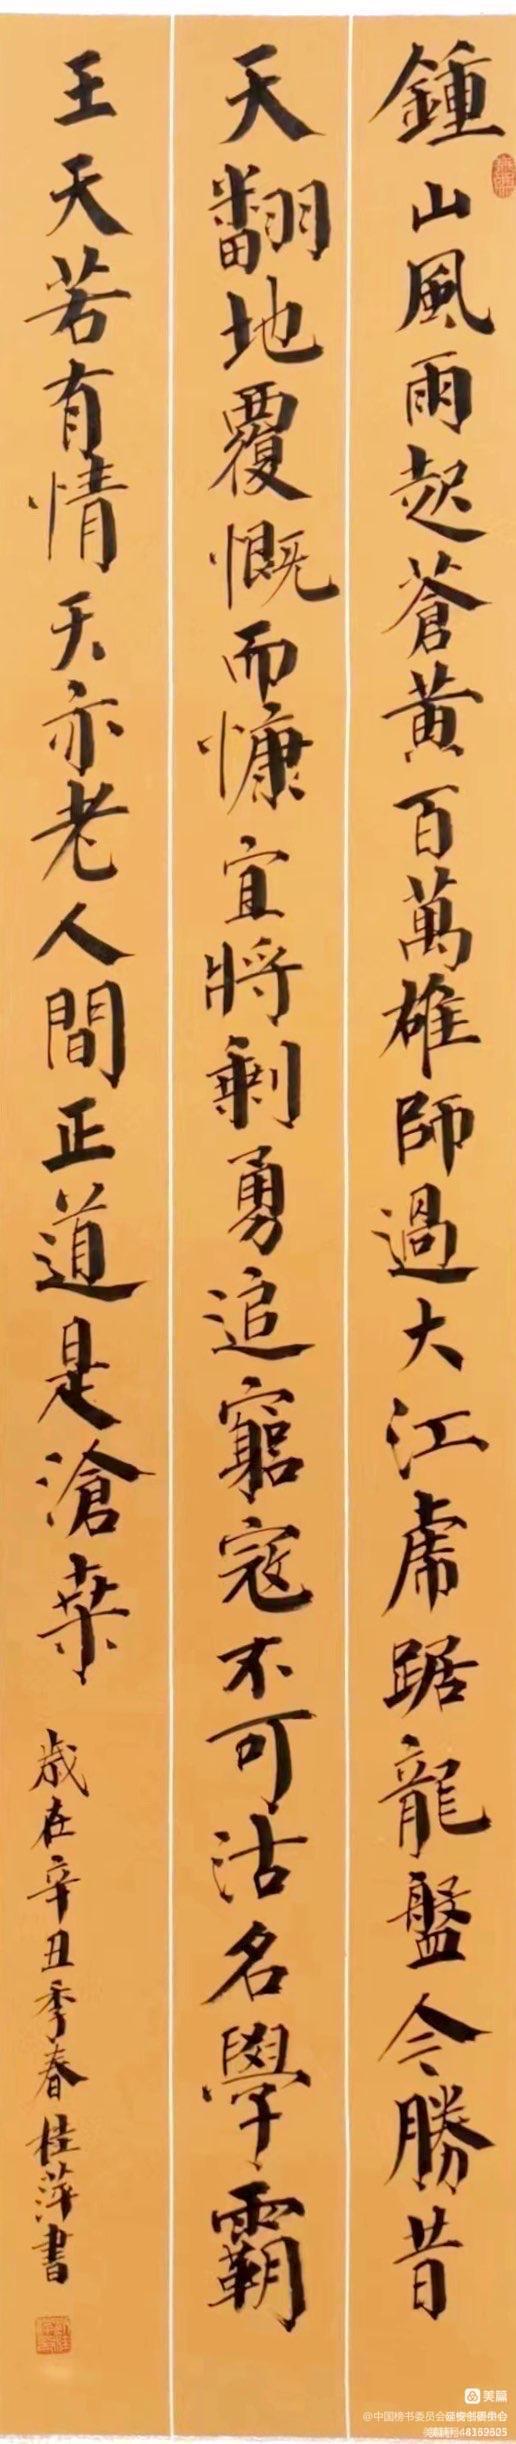 鍾山風雨起蒼黄百萬雄師過大江虎踞龍盤今勝昔
天翻地覆慨而慷宜將剩勇追窮寇不可沽名學霸
王天若有情天亦老人間正道是滄桑
歲在辛丑季春桂萍書
美篇